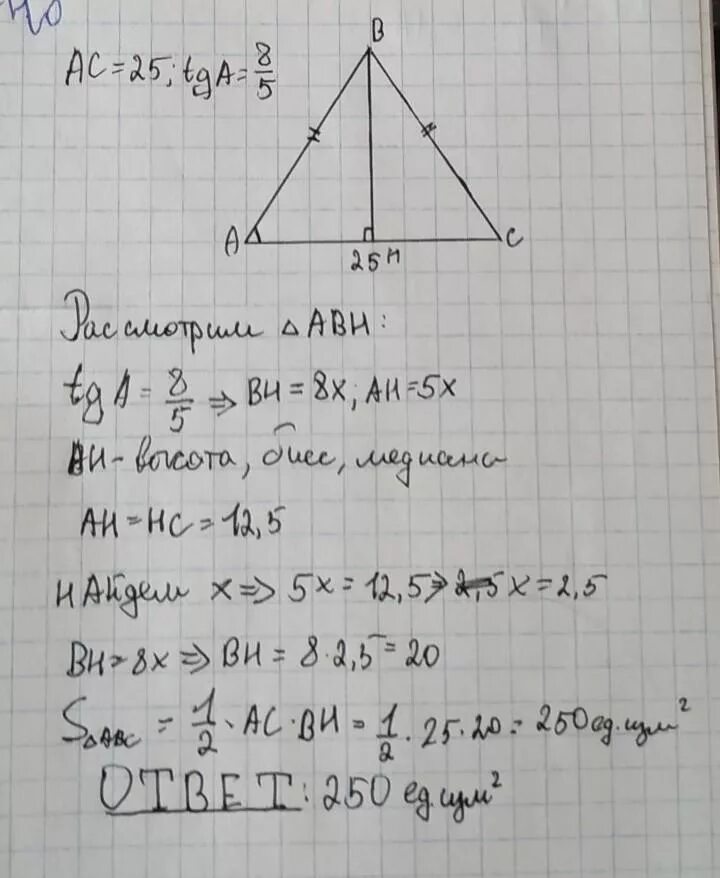 AC=25; tgA=8/5
B
A
C
25 H
Рассмотрим △ABH:
tgA=8/5 ⇒ BH=8x; AH=5x
BH-высота, бисс, медиана
AH=HC=12,5
НАйдем x⇒ 5x=12,5⇒ x=2,5
BH=8x⇒ BH=8·2,5=20
S△ABC = 1/2·AC·BH=1/2·25·20=250ед.изм²
ОТВЕТ: 250 ед изм²